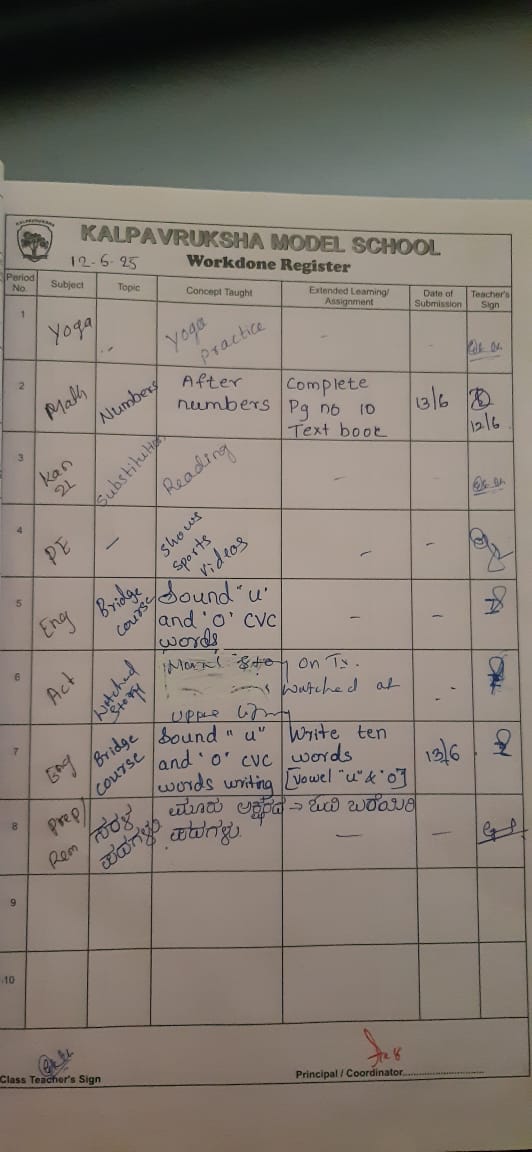 KALPAVRUKSHA MODEL SCHOOL
12-6-25 Workdone Register
Period No. Subject Topic Concept Taught Extended Learning/ Assignment Date of Submission Teacher's Sign
1 Yoga Yoga practice -
2 Math Numbers After numbers Complete Pg no 10 Text book 13/6 12/6
3 Kan 2L Substitution Reading - -
4 PE - shows sports videos - -
5 Eng Bridge course Sound "u" and 'o' CVC words - -
6 Act Watched story on Tv. watched at upper
7 Eng Bridge course Sound "u" and 'o' CVC words writing Write ten words [vowel "u" & 'o'] 13/6
8 Prep/ Rem ಸರಳ ಪದಗಳು ಮೂರು ಅಕ್ಷರದ ಪದಗಳು. → ಓದಿ ಬರೆಯಿರಿ - -
9
10
Class Teacher's Sign
Principal / Coordinator